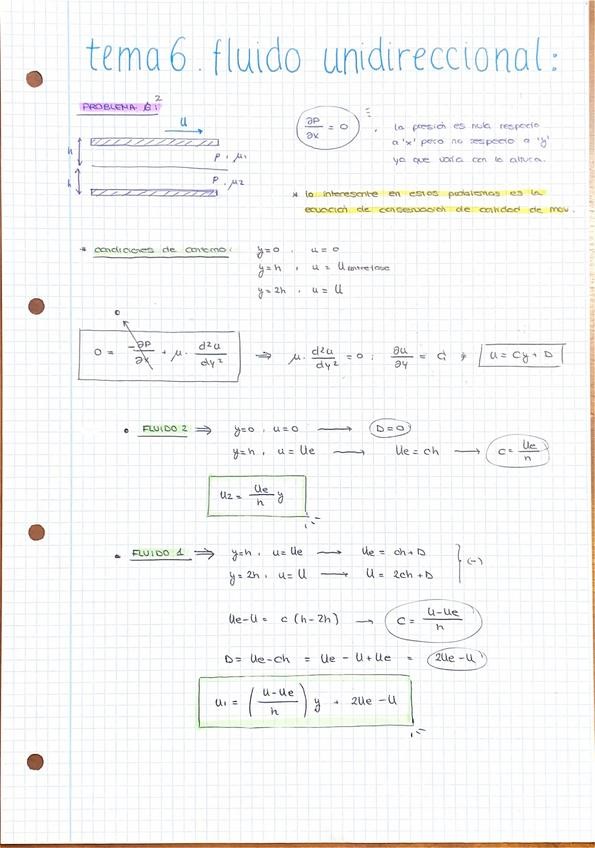 tema 6. fluido unidireccional:
PROBLEMA 6.1 2
U
h
ρ, μ1
h
ρ, μ2
∂P/∂x = 0
, la presión es nula respecto
a 'x' pero no respecto a 'y'
ya que varía con la altura.
* lo interesante en estos problemas es la
ecuación de conservación de cantidad de mov.
* condiciones de contorno:
y=0 , u=0
y=h , u = U entrefase
y=2h , u = U
0
0 = -∂P/∂x + μ · d²u/dy² ⇒ μ · d²u/dy² = 0 ; ∂u/∂y = C ; u = Cy + D
• FLUIDO 2 ⇒ y=0 , u=0 → D=0
y=h , u=Ue → Ue = ch → c = Ue/h
u2 = Ue/h y
• FLUIDO 1 ⇒ y=h , u=Ue → Ue = ch+D
y=2h , u=U → U = 2ch+D
(-)
Ue-U = c (h-2h) → c = U-Ue/h
D = Ue-ch = Ue - U + Ue = 2Ue-U
u1 = (U-Ue/h) y + 2Ue - U